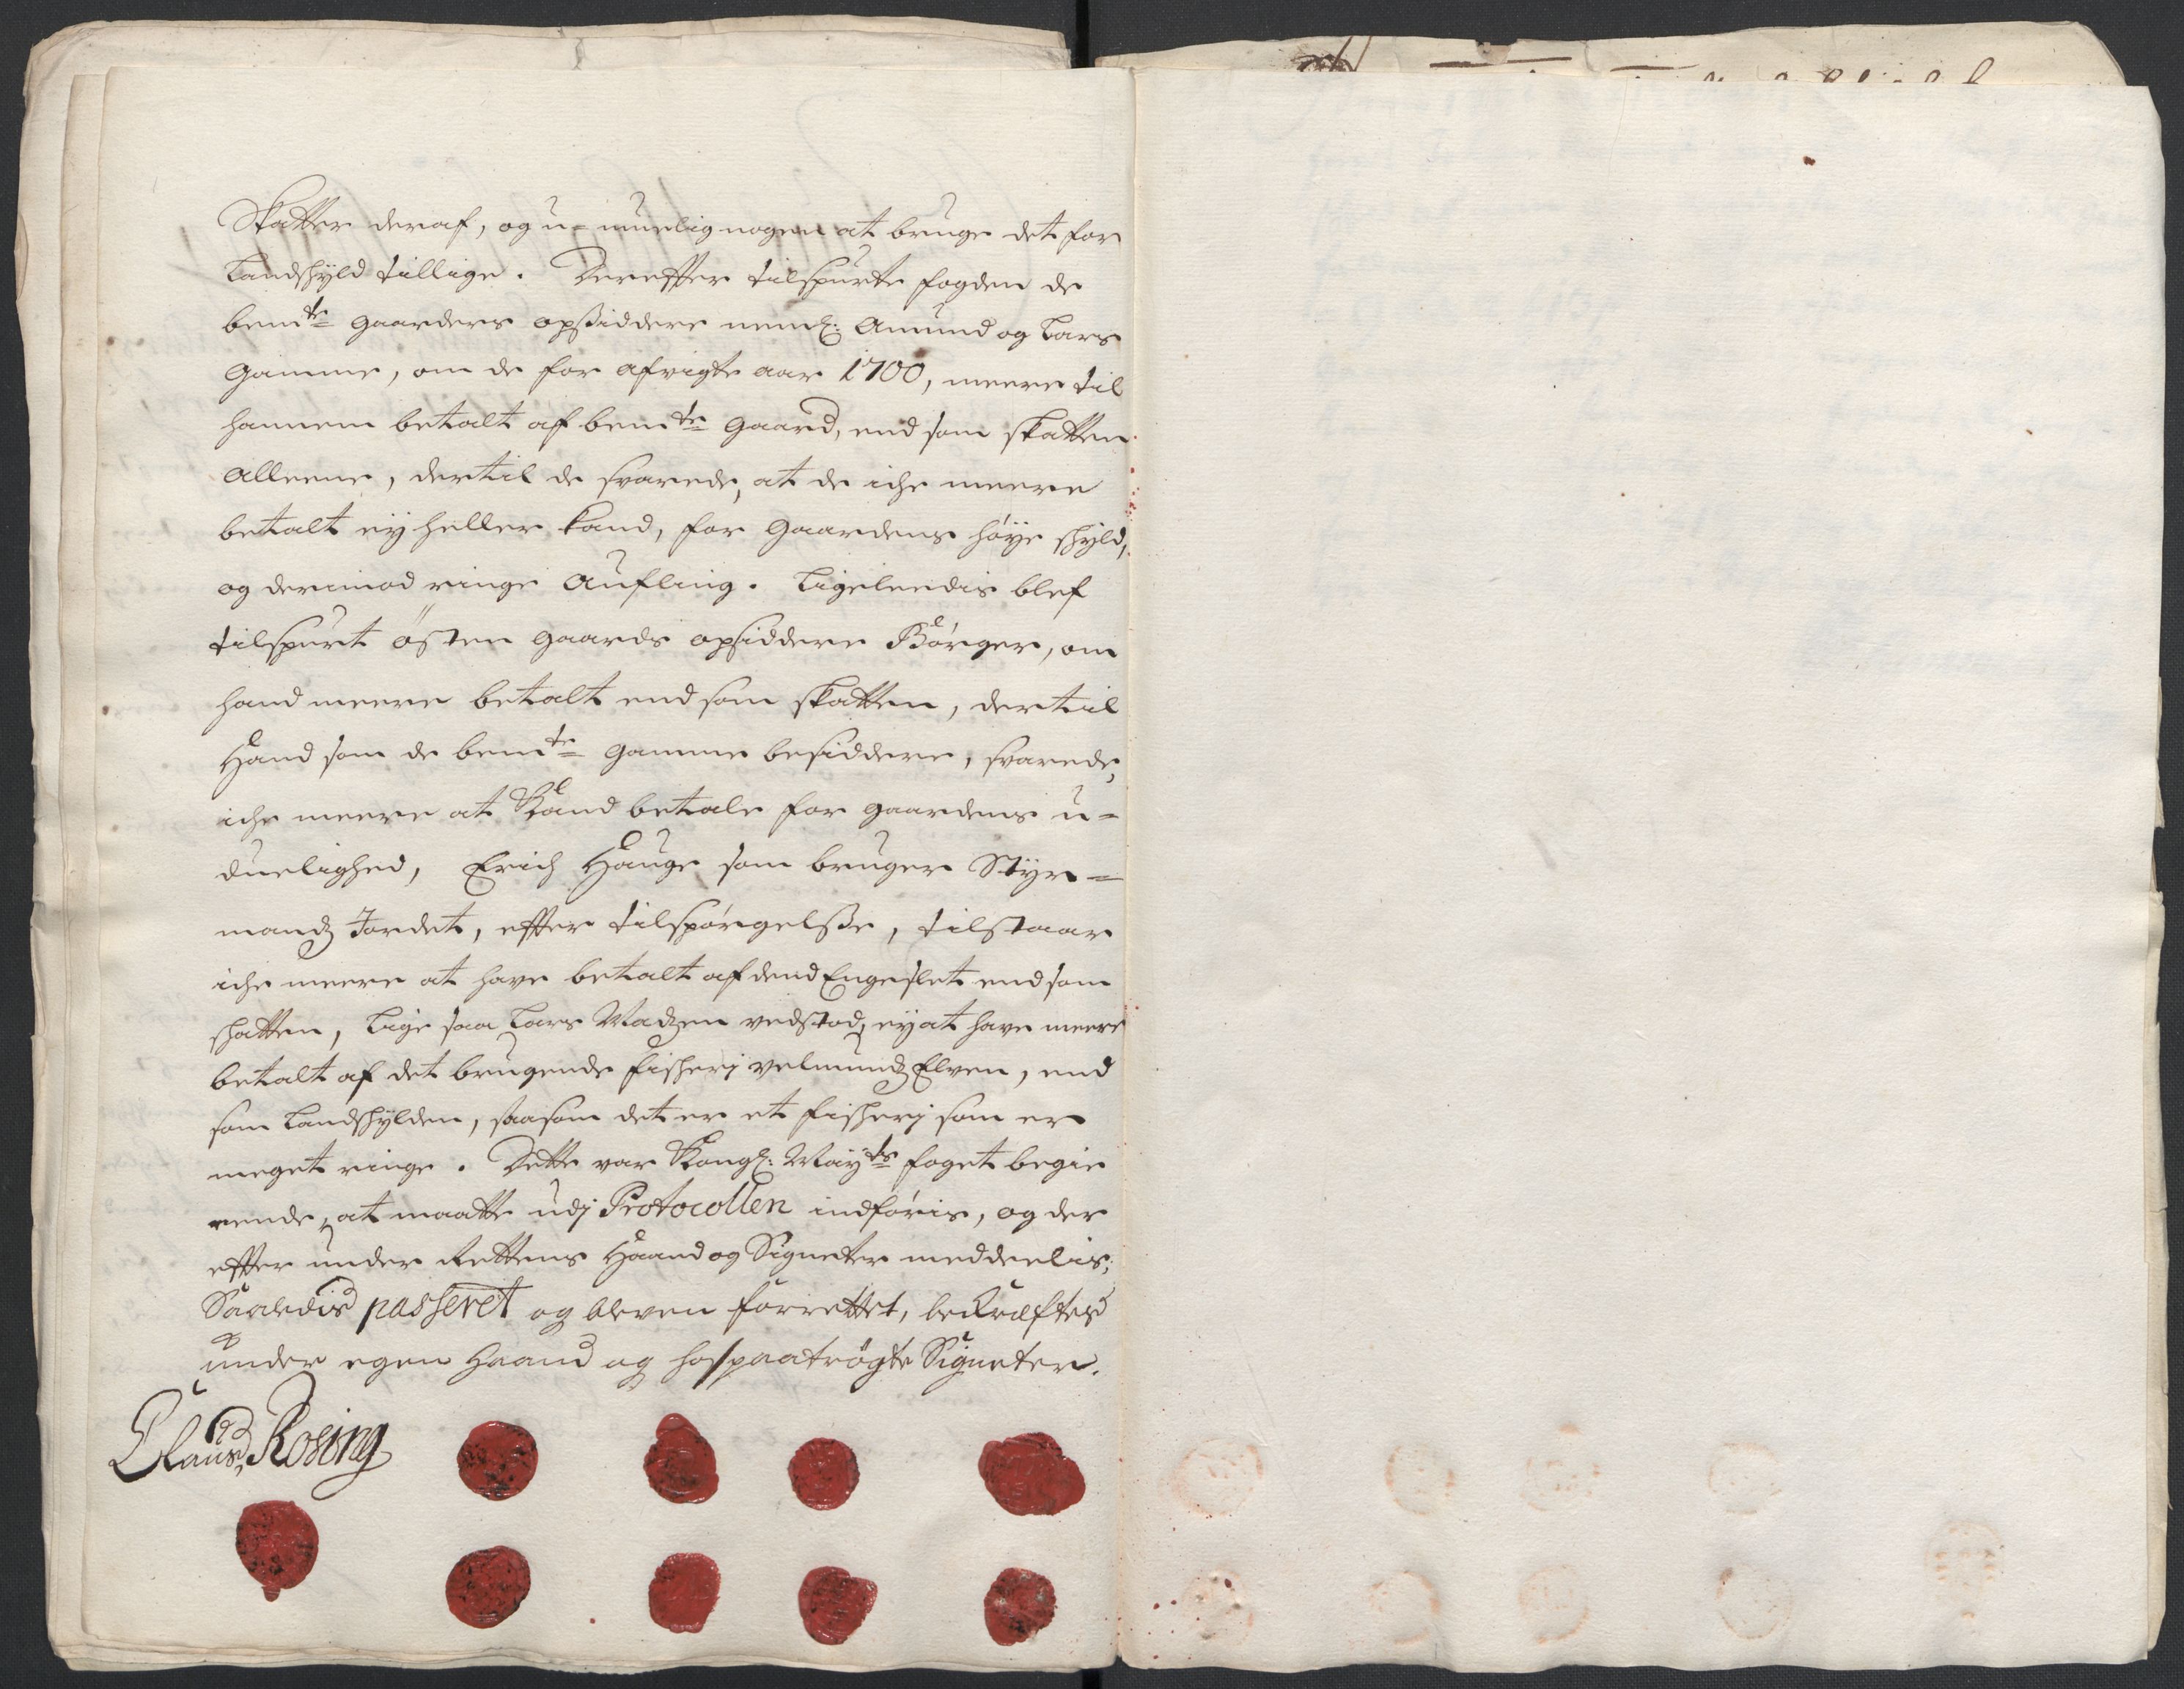 Skatter deraf, og u-muelig nogen at bruge det for
Landskyld tillige. Derefter tilspurte fogden de
bemte gaarders opsiddere neml: Amund og Lars
Gamme, om de for afvigte aar 1700, meere til
hannem betalt af bemte gaard, end som skatten
alleene, dertil de svarede, at de iche meere
betalt ey heller kand, for gaardens høye skyld,
og derimod ringe aufling. Ligeleedis blef
tilspurt østen gaards opsiddere Børger, om
hand meere betalt end som skatten, dertil
Hand som de bemte Gamme besiddere, svarede,
iche meere at Kand betale for gaardens u-
duelighed, Erich Hauge som bruger Styr-
mandz Jordet, efter tilspørgelsse, tilstaar
iche meere at have betalt af dend Engeslet end som
skatten, Lige saa Lars Madzen vedstod, ey at have meere
betalt af det brugende fiskerj velmundz Elven, end
som Landskylden, saasom det er et fiskerj som er
meget ringe. Dette var Kongl: Mayts foget begie
rende, at maatte udj Protocollen indføris, og der
efter under Rettens Haand og Signeter meddeelis;
Saaledis passeret og bleven forrettet, bekræftes
under egen Haand og hospaatrögte Signeter.
Clauss Rosing